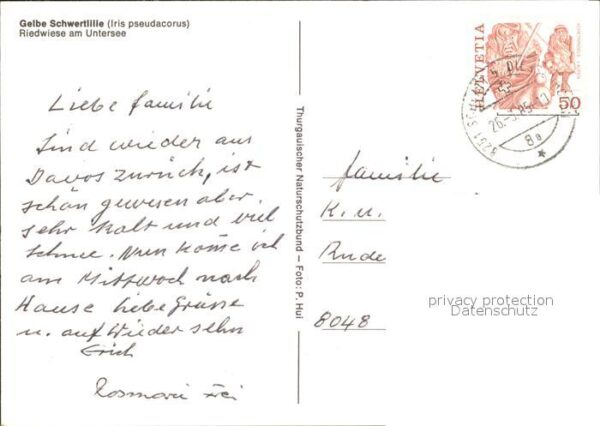 Gelbe Schwertlilie (Iris pseudacorus)
Riedwiese am Untersee
Liebe Familie
Sind wieder aus
Davos zurück, ist
schön gewesen aber
sehr kalt und viel
Schnee. Nun komme ich
am Mittwoch nach
Hause liebe Grüsse
u. auf Wieder sehn
Erich
Rosmarie Frei
Thurgauischer Naturschutzbund – Foto: P. Hui
HELVETIA
50
8251
26.-3.85-11
8a
Familie
K. u.
Rude
8048
privacy protection
Datenschutz